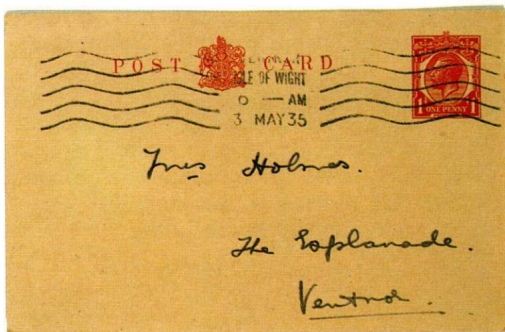 POST CARD
ISLE OF WIGHT
AM
3 MAY 35
1 ONE PENNY 1
Mrs Holmes.
The Esplanade.
Ventnor.